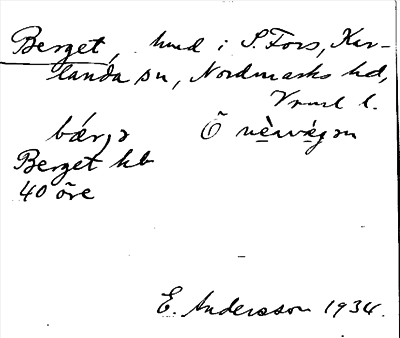 Berget, hmd i S. Fors, Kar-
landa sn, Nordmarks hd,
Vrml l.
bǽrjə Ö
Berget hb
40 öre
E. Andersson 1934.